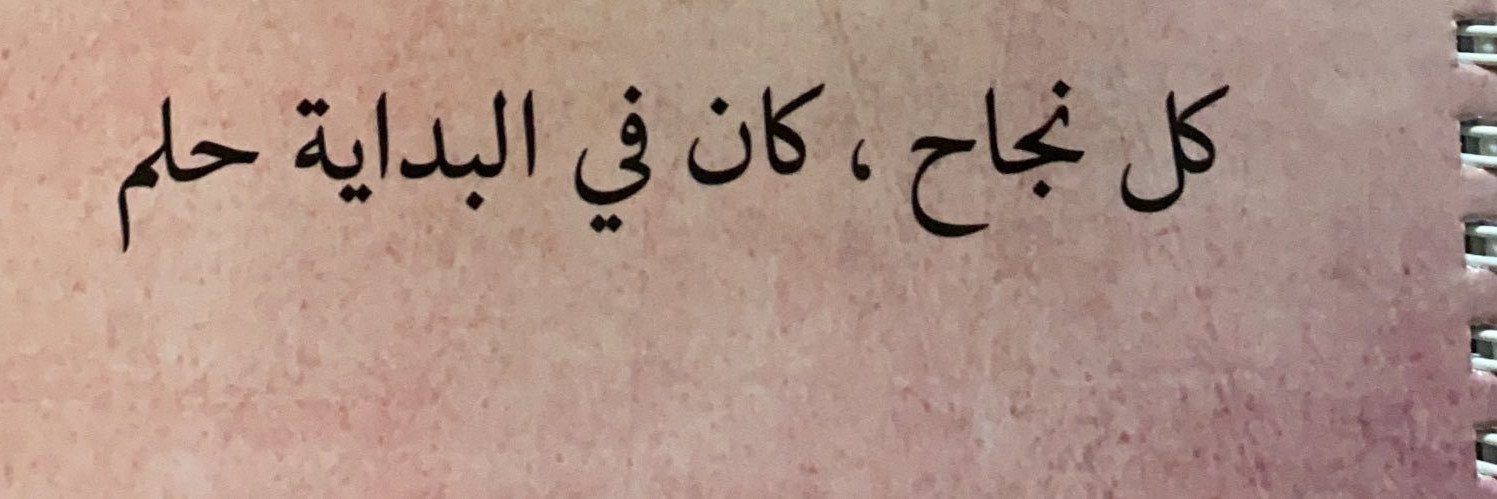 كل نجاح ، كان في البداية حلم